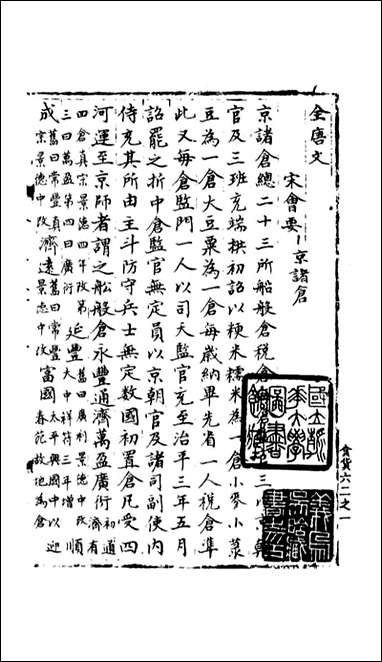 全唐文
宋會要 京諸倉
京諸倉總二十三所船般倉稅倉
官及三班充端拱初詔以粳米糯米為一倉小麥小菉
豆為一倉大豆粟為一倉每歲納畢先省一人稅倉準
此又每倉監門一人以司天監官充至治平三年五月
詔罷之折中倉監官無定員以京朝官及諸司副使內
侍充其所由主斗防守兵士無定數國初置倉凡受四
河運至京師者謂之船般倉永豐通濟萬盈廣衍初通濟有
四倉真宗景德四年改第三曰萬盈第四曰廣衍延豐舊曰廣利景德中改大中祥符三年增順
成舊曰常豐真宗景德中改濟遠舊曰常豐景德中改富國太平興國中以迎春苑故地為倉
食貨六二之一